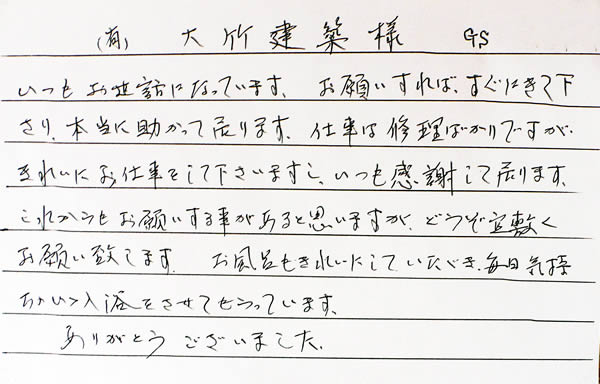 (有) 大竹建築様 GS
いつもお世話になっています。お願いすれば、すぐにきて下
さり、本当に助かって居ります。仕事は修理ばかりですが、
きれいにお仕事をして下さいますし、いつも感謝して居ります。
これからもお願いする事があると思いますが、どうぞ宜敷く
お願い致します。お風呂もきれいにしていただき、毎日気持
ちいい入浴をさせてもらっています。
ありがとうございました。